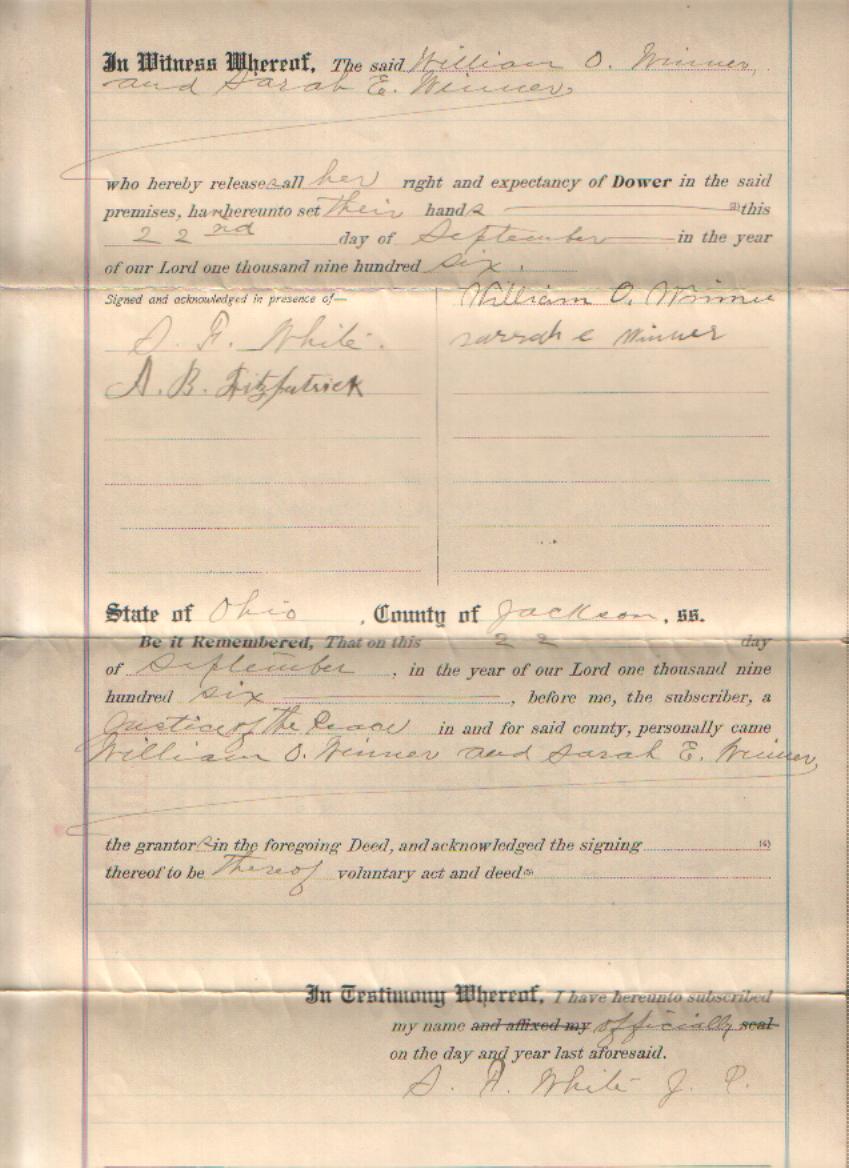 In Witness Whereof, The said William O. Winner,
and Sarah E. Winner,
who hereby releases all her right and expectancy of Dower in the said
premises, have hereunto set their hands (2) this
22nd day of September in the year
of our Lord one thousand nine hundred six.
Signed and acknowledged in presence of—
William O. Winne
S. F. White.
sarrah e Winner
A. B. Fitzpatrick
State of Ohio, County of Jackson, ss.
Be it Remembered, That on this 22 day
of September, in the year of our Lord one thousand nine
hundred six, before me, the subscriber, a
Justice of the Peace in and for said county, personally came
William O. Winner and Sarah E. Winner,
the grantors in the foregoing Deed, and acknowledged the signing
thereof to be Thereof voluntary act and deed
In Testimony Whereof, I have hereunto subscribed
my name and affixed my officially seal
on the day and year last aforesaid.
S. F. White J. P.